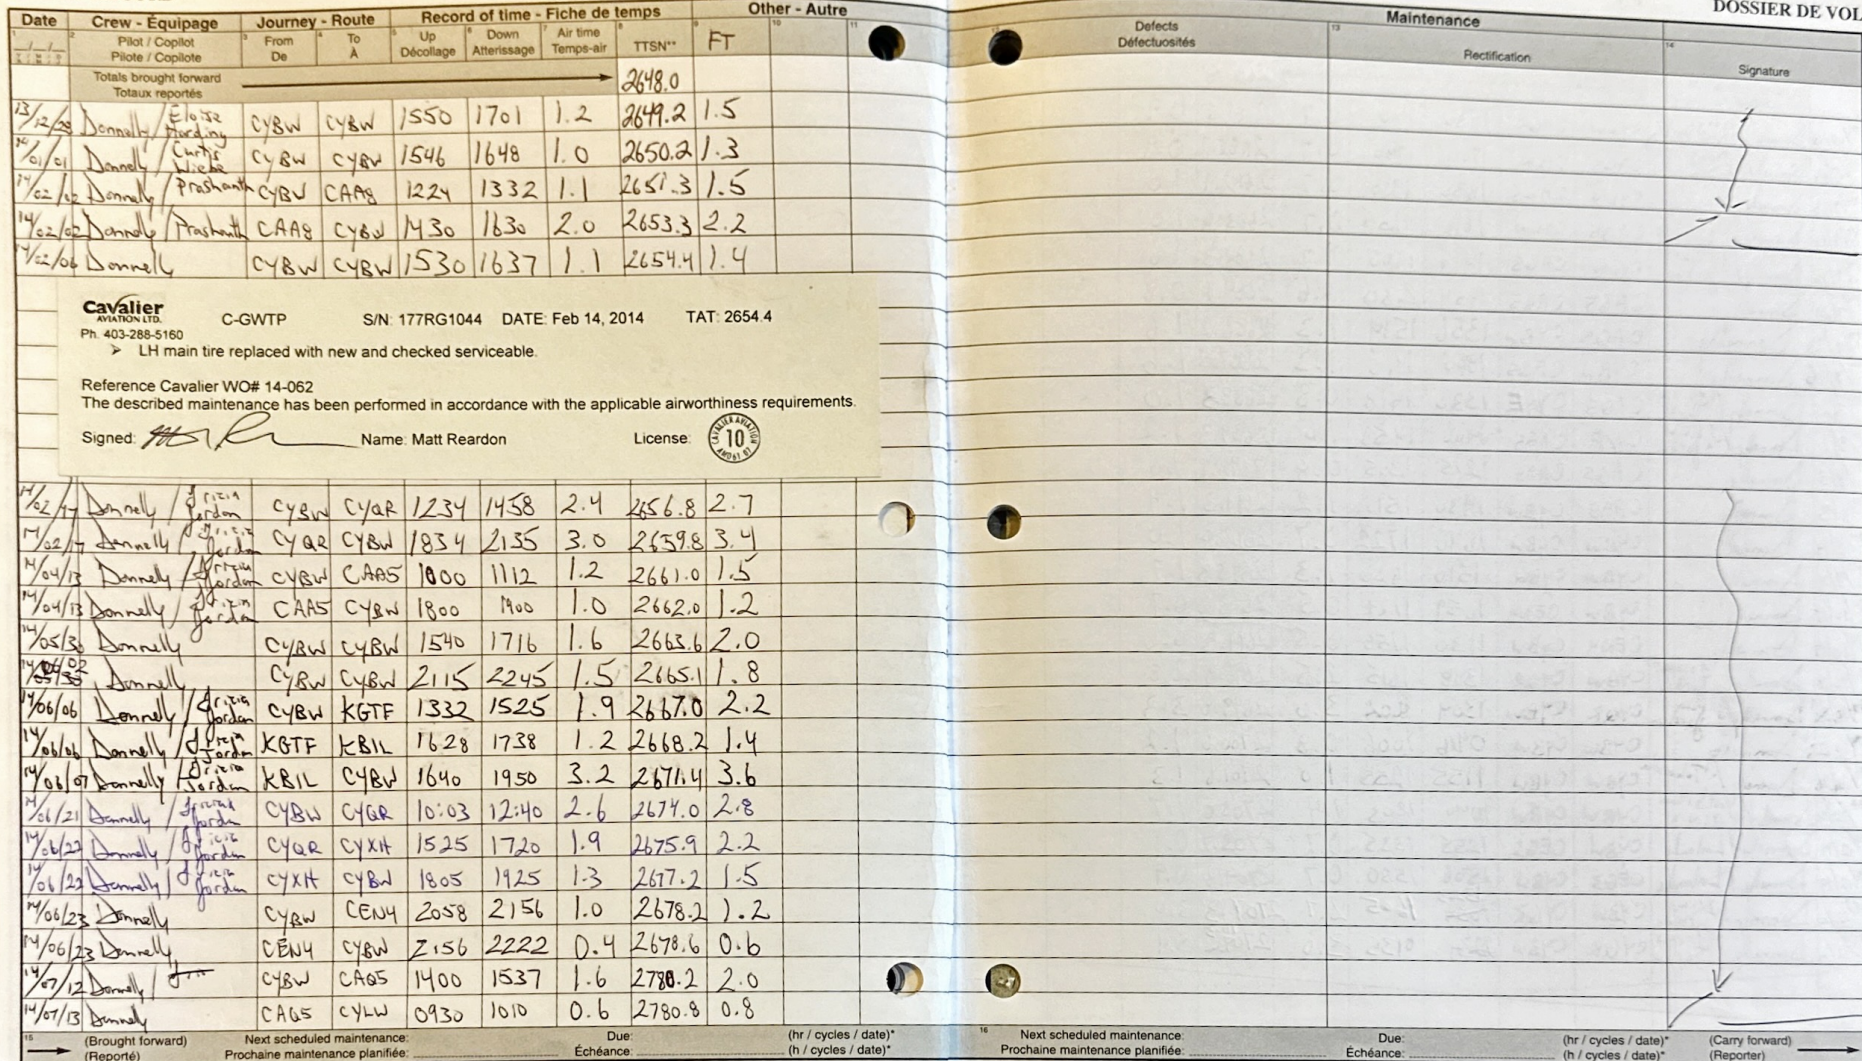 DOSSIER DE VOL
Date Crew - Équipage Journey - Route Record of time - Fiche de temps Other - Autre
1 2 Pilot / Copilot 3 From 4 To 5 Up 6 Down 7 Air time 8 TTSN** 9 FT 10 11
Pilote / Copilote De À Décollage Atterissage Temps-air
Totals brought forward 2648.0
Totaux reportés
13/12/28 Donnelly / Eloise Harding CYBW CYBW 1550 1701 1.2 2649.2 1.5
14/01/01 Donnelly / Curtis Wiebe CYBW CYBW 1546 1648 1.0 2650.2 1.3
14/02/02 Donnelly / Prashanth CYBW CAA8 1224 1332 1.1 2651.3 1.5
14/02/02 Donnelly / Prashanth CAA8 CYBW 1430 1630 2.0 2653.3 2.2
14/02/06 Donnelly CYBW CYBW 1530 1637 1.1 2654.4 1.4
Cavalier
AVIATION LTD. C-GWTP S/N: 177RG1044 DATE: Feb 14, 2014 TAT: 2654.4
Ph. 403-288-5160
➢ LH main tire replaced with new and checked serviceable.
Reference Cavalier WO# 14-062
The described maintenance has been performed in accordance with the applicable airworthiness requirements.
Signed: Name: Matt Reardon License: CAVALIER AVIATION 10 AMO 61-87
14/02/17 Donnelly / Jordan CYBW CYQR 1234 1458 2.4 2656.8 2.7
14/02/17 Donnelly / Jordan CYQR CYBW 1834 2135 3.0 2659.8 3.4
14/04/13 Donnelly / Jordan CYBW CAA5 1000 1112 1.2 2661.0 1.5
14/04/13 Donnelly / Jordan CAA5 CYBW 1800 1900 1.0 2662.0 1.2
14/05/30 Donnelly CYBW CYBW 1540 1716 1.6 2663.6 2.0
14/06/02 Donnelly CYBW CYBW 2115 2245 1.5 2665.1 1.8
14/06/06 Donnelly / Jordan CYBW KGTF 1332 1525 1.9 2667.0 2.2
14/06/06 Donnelly / Jordan KGTF KBIL 1628 1738 1.2 2668.2 1.4
14/06/07 Donnelly / Jordan KBIL CYBW 1640 1950 3.2 2671.4 3.6
14/06/21 Donnelly / Jordan CYBW CYQR 10:03 12:40 2.6 2674.0 2.8
14/06/22 Donnelly / Jordan CYQR CYXH 1525 1720 1.9 2675.9 2.2
14/06/22 Donnelly / Jordan CYXH CYBW 1805 1925 1.3 2677.2 1.5
14/06/23 Donnelly CYBW CEN4 2058 2156 1.0 2678.2 1.2
14/06/23 Donnelly CEN4 CYBW 2156 2222 0.4 2678.6 0.6
14/07/12 Donnelly / CYBW CAQ5 1400 1537 1.6 2780.2 2.0
14/07/13 Donnelly CAQ5 CYLW 0930 1010 0.6 2780.8 0.8
15 (Brought forward) Next scheduled maintenance: Due: (hr / cycles / date)*
(Reporté) Prochaine maintenance planifiée: Échéance: (h / cycles / date)*
Maintenance
Defects 13 Rectification 14 Signature
Défectuosités
16 Next scheduled maintenance: Due: (hr / cycles / date)* (Carry forward)
Prochaine maintenance planifiée: Échéance: (h / cycles / date)* (Reporter)